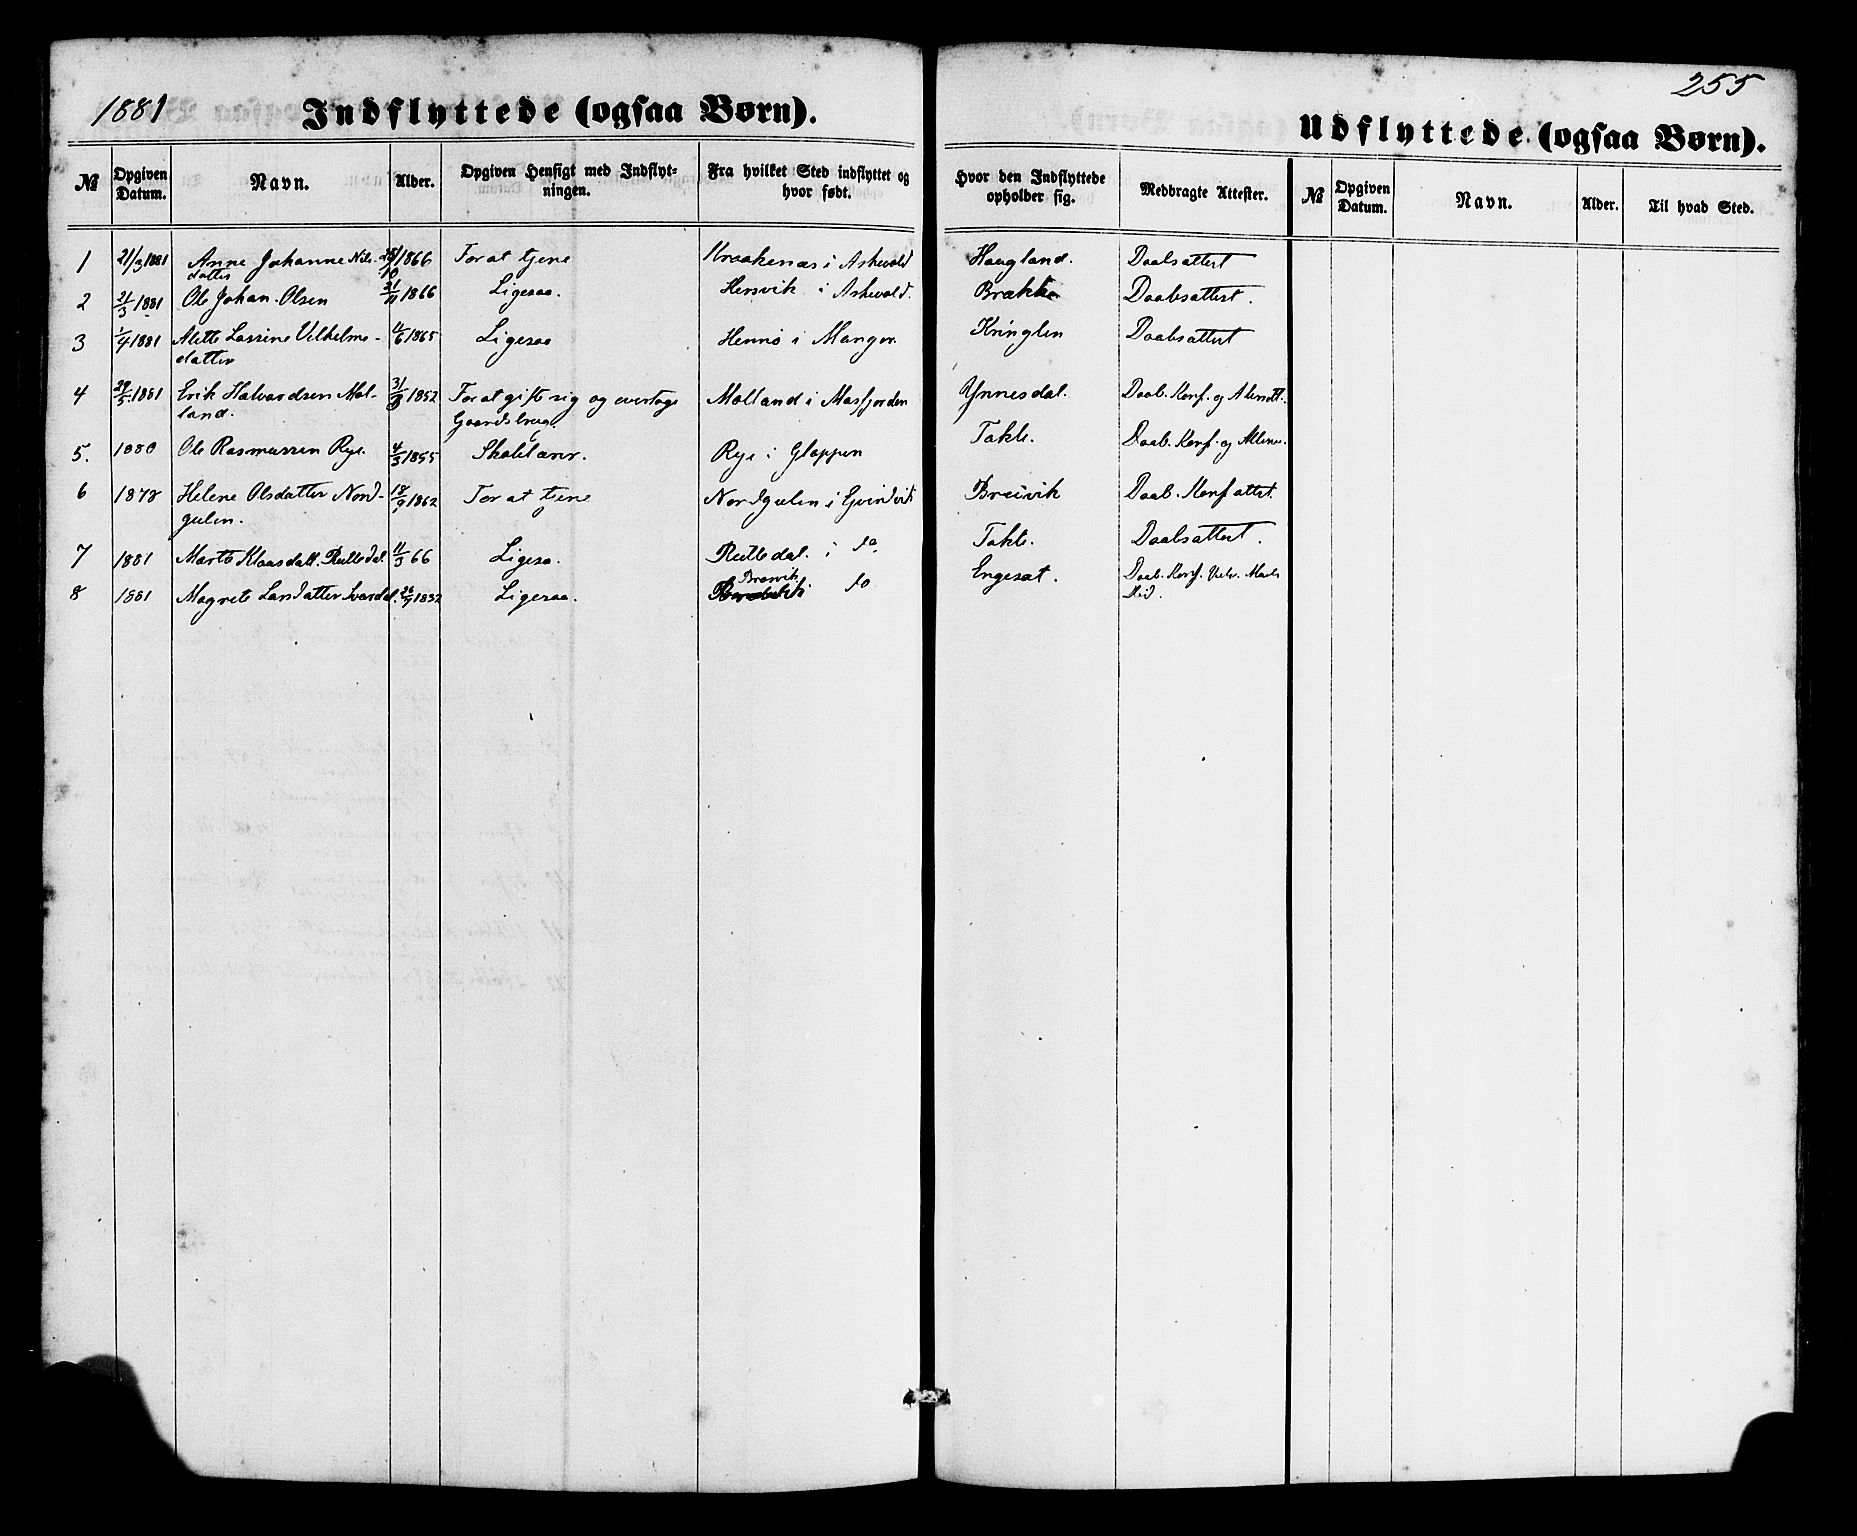 1881 Indflyttede (ogsaa Børn).
255
Udflyttede (ogsaa Børn).
№ Opgiven Datum. Navn. Alder. Opgiven Hensigt med Indflytningen. Fra hvilket Sted indflyttet og hvor født. Hvor den Indflyttede opholder sig. Medbragte Attester. № Opgiven Datum. Navn. Alder. Til hvad Sted.
1 21/3 1881 Anne Johanne Nils- /10 1866 For at tjene Kraakenæs i Askevold Haugland. Daabsattest
datter
2 21/3 1881 Ole Johan Olsen 21/11 1866 Ligesaa. Hersvik i Askevold. Brække Daabsattest.
3 1/4 1881 Alette Lassine Vilhelms- 4/6 1865 Ligesaa Hennø i Manger Kringlen Daabsattest
datter
4 29/5 1881 Erik Halvardsen Mol- 31/8 1852 For at gifte sig og overtage Molland i Masfjorden Ynnesdal. Daab. Konf. og
land. Gaardsbrug.
5. 1880 Ole Rasmussen Rye. 4/3 1855 Skolelærer. Rye i Gloppen Takle. Daab. Konf. og
6 1878 Helene Olsdatter Nord- 18/9 1862 For at tjene Nordgulen i Evindvik Breivik Daab. Konf attest.
gulen.
7 1881 Marte Klaasdatt. Rutledal 11/3 66 Ligesa. Rutledal. i do. Takle. Daabsattest.
8 1881 Magrete Larsdatter 1832 Ligesaa. Brosvik do Engesæt. Daab. Konf.